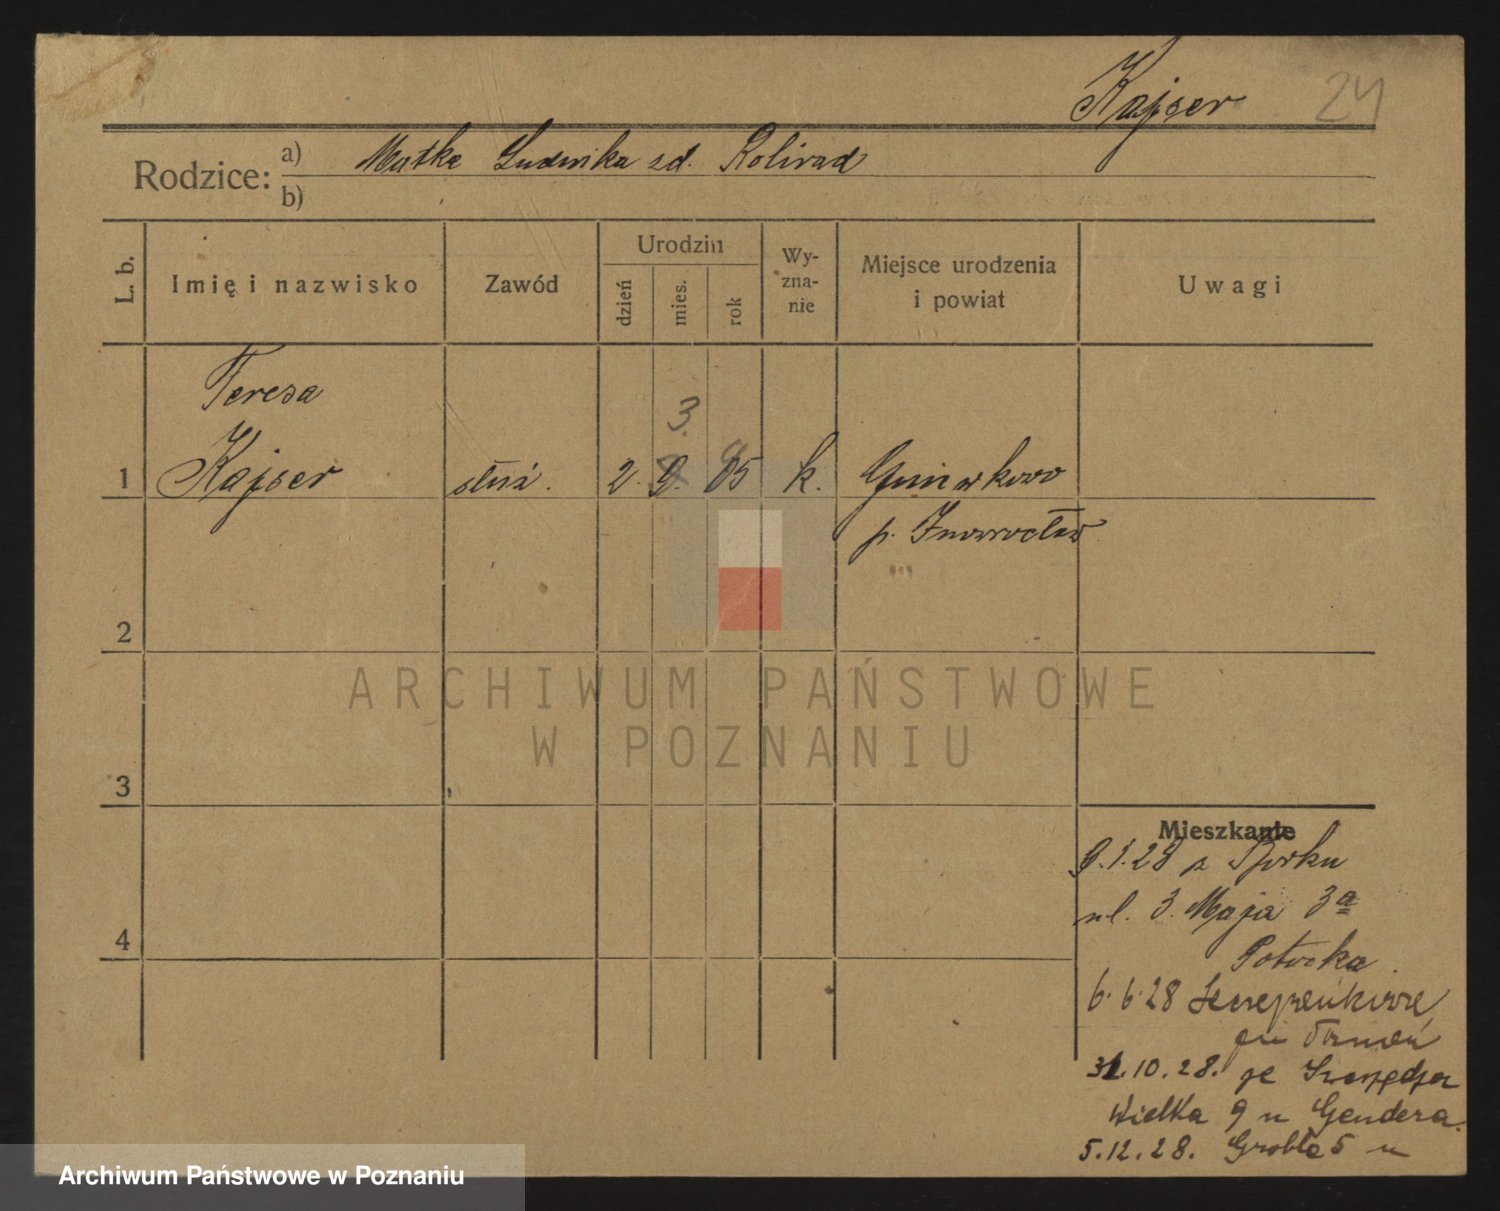 Kajser 24
Rodzice: a) Matka Ludwika zd. Kolirad
b)
L. b. Imię i nazwisko Zawód Urodzin dzień mies. rok Wy-zna-nie Miejsce urodzenia i powiat Uwagi
Teresa
3.
1 Kajser służ. 2. 9. 05 k. Gniewkowo
p. Inowrocław
2
ARCHIWUM PAŃSTWOWE
W POZNANIU
3
Mieszkanie
9.1.28 z
ul. 3. Maja 3a
4
Potocka
6.6.28
31.10.28.
Wielka 9 u Gendera.
5.12.28. Grobla 5 u
Archiwum Państwowe w Poznaniu